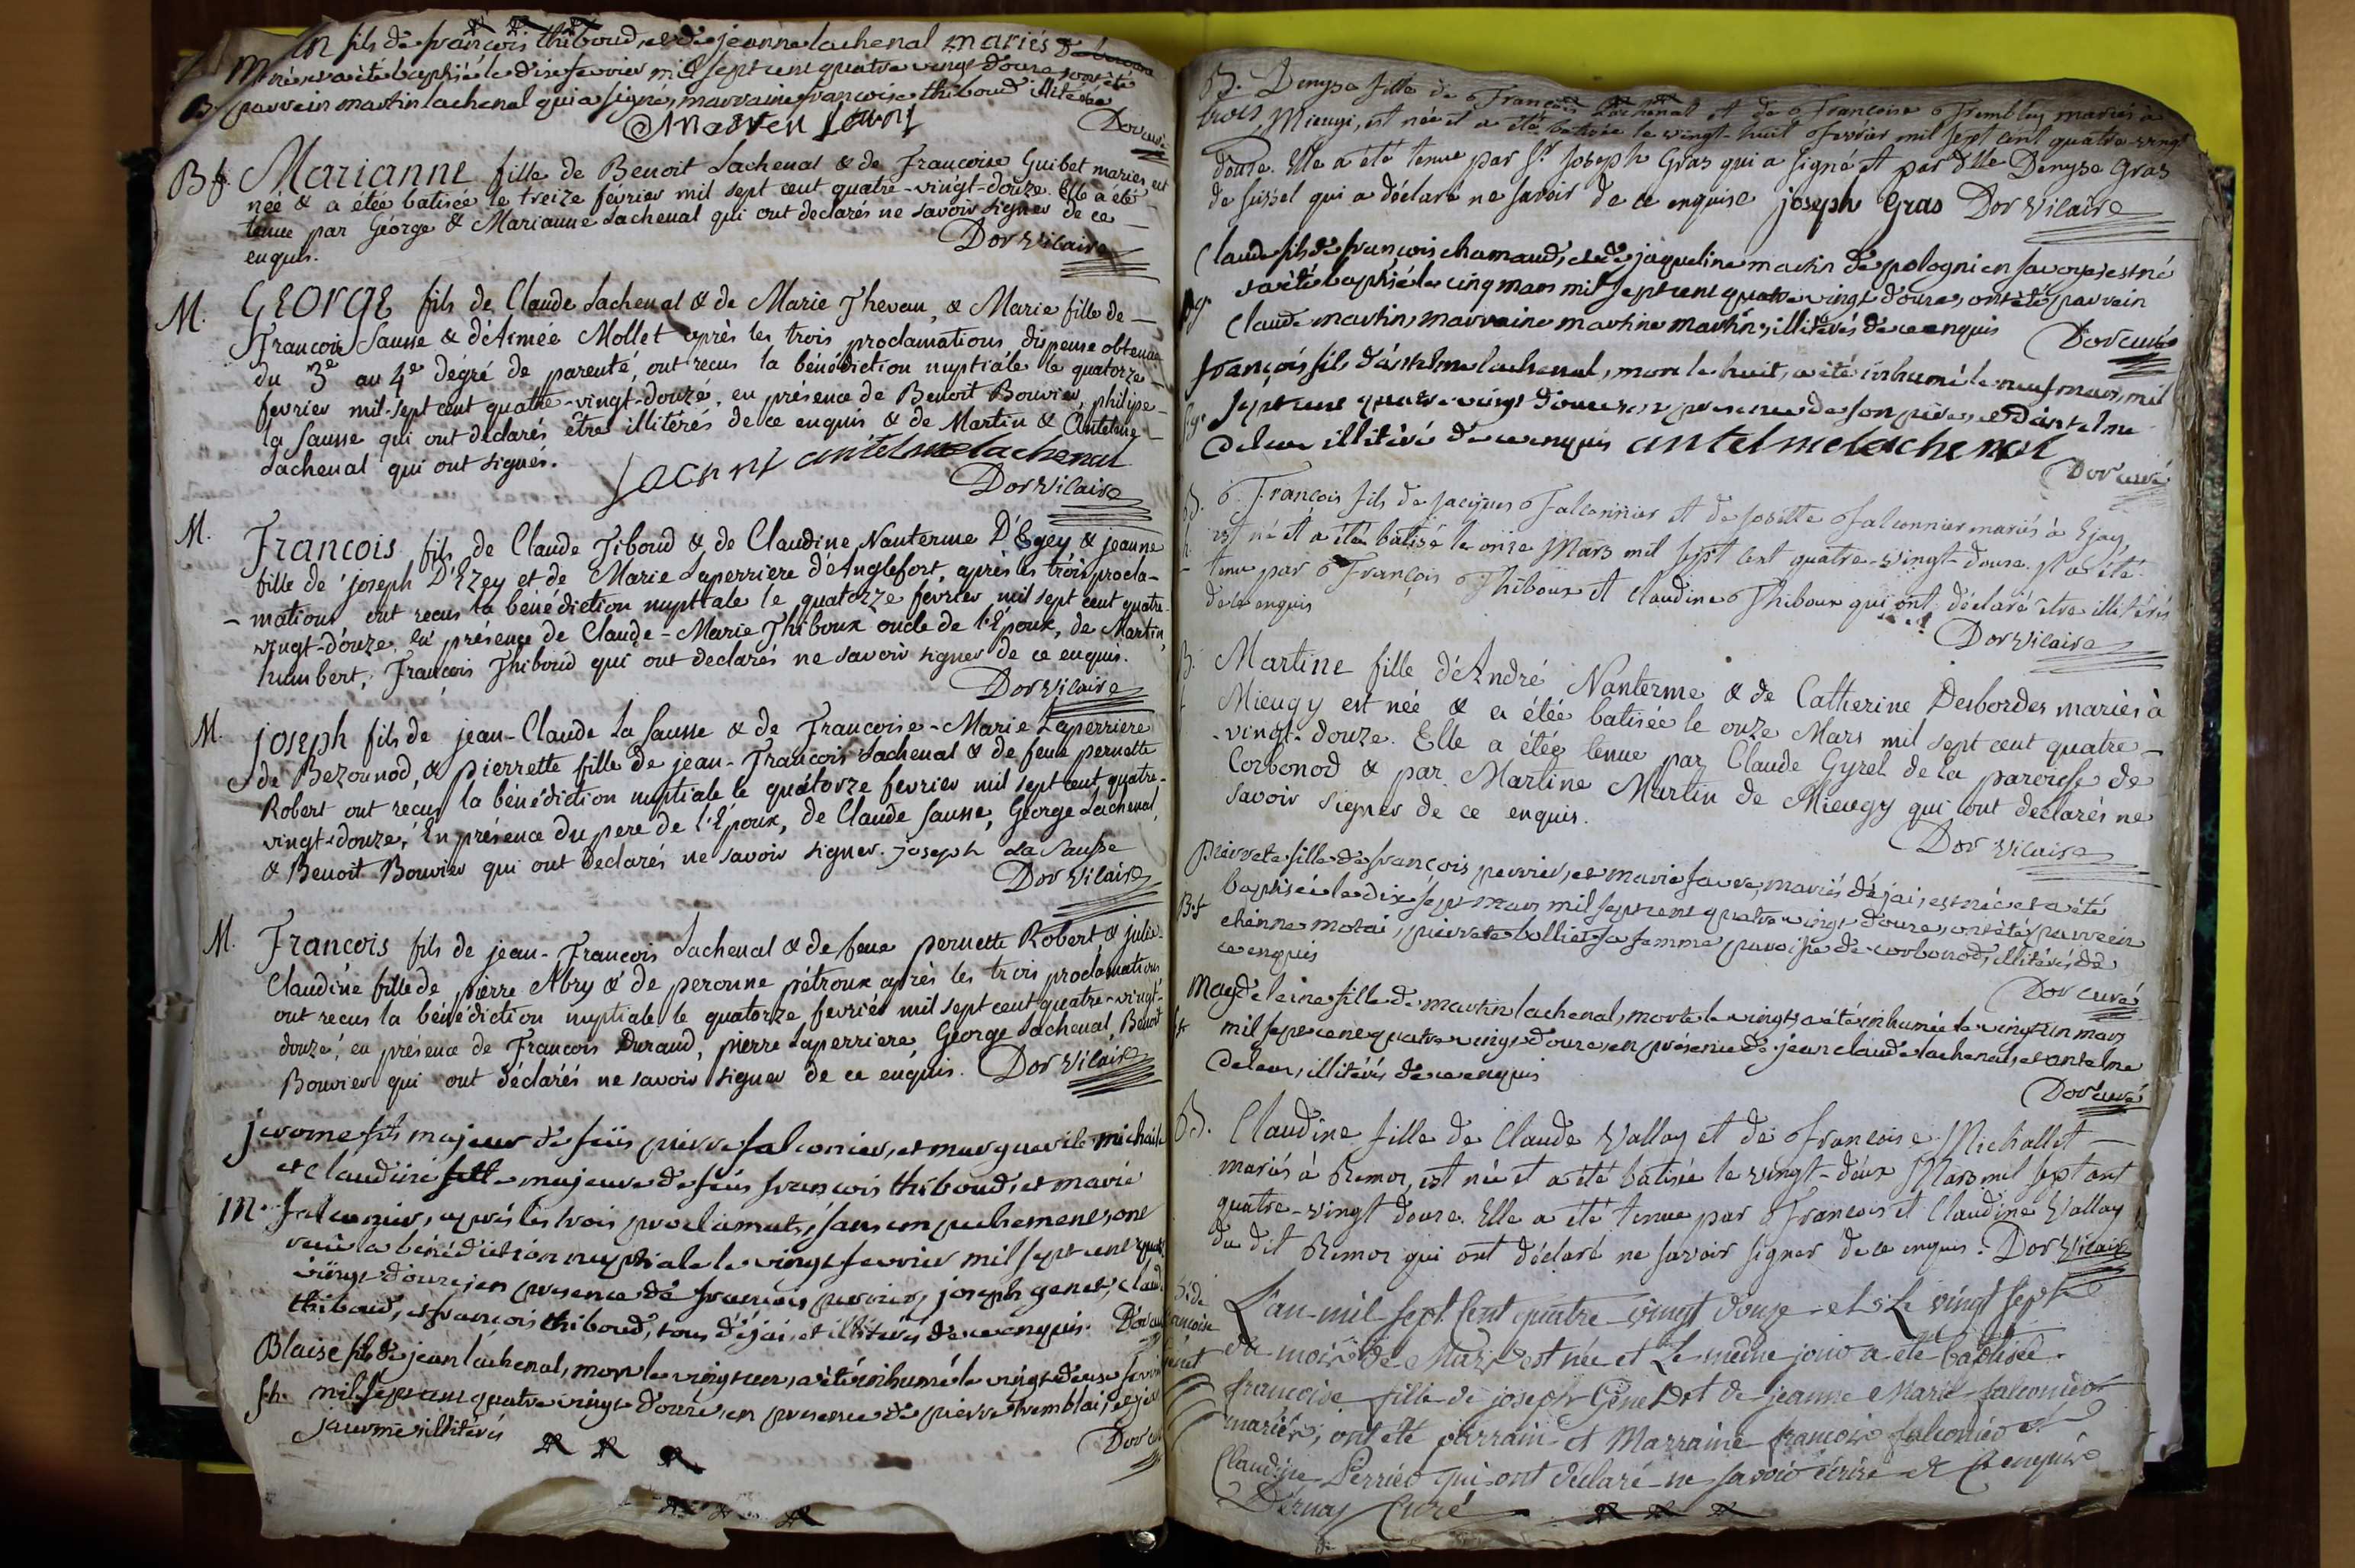 fils de françois thiboud, et de jeanne lachenal mariés
né, et a été baptisé le dix fevrier mil sept cent quatre vingt douze, ont été
B parrein martin lachenal qui a signé, marraine françoise thiboud illitérée
Dor curé
B f. Marianne fille de Benoit Lachenal & de Francoise Guibet mariés, est
née & a étée batisée le treize février mil sept cent quatre-vingt-douze. Elle a été
tenue par George & Marianne Lachenal qui ont declarés ne savoir signer de ce
enquis.
Dor Vicaire
M. GEORGE fils de Claude Lachenal & de Marie Thevan, & Marie fille de
Francois Sausse & d'Aimée Mollet après les trois proclamations, dispense obtenue
du 3e au 4e dégré de parenté, ont recus la bénédiction nuptiale le quatorze
fevrier mil-sept cent quatre-vingt-douze, en présence de Benoit Bouvier, philipe
la Sausse qui ont declarés être illitérés de ce enquis & de Martin & Antelme
Lachenal qui ont signés.
antelme lachenal
Dor Vicaire
M. Francois fils de Claude Tiboud & de Claudine Nanterme D'Ezey & jeanne
fille de joseph D'Ezey et de Marie Laperriere d'Anglefort, après les trois procla-
mations ont recus la bénédiction nuptiale le quatorze fevrier mil sept cent quatre-
vingt-douze, en présence de Claude-Marie Thiboux oncle de l'Époux, de Martin
humbert, Francois Thiboud qui ont declarés ne savoir signer de ce enquis.
Dor Vicaire
M. joseph fils de jean-Claude La Sausse & de Francoise-Marie Laperriere
de Bezounod, & pierrette fille de jean-Francois Lachenal & de feue pernette
Robert ont recus la bénédiction nuptiale le quatorze fevrier mil sept cent quatre-
vingt-douze, En présence du pere de l'Époux, de Claude Sausse, George Lachenal,
& Benoit Bouvier qui ont declarés ne savoir signer. joseph La Sausse
Dor Vicaire
M. Francois fils de jean-Francois Lachenal & de feue pernette Robert & julie-
Claudine fille de pierre Abry & de peronne pétroux après les trois proclamations
ont recus la bénédiction nuptiale le quatorze fevrier mil sept cent quatre-vingt-
douze, en présence de Francois Durand, pierre Laperriere, George Lachenal, Benoit
Bouvier qui ont déclarés ne savoir signer de ce enquis. Dor Vicaire
jerome fils majeur de feüs pierre falconier, et marguerite michaile
et claudine fille majeure de feüs françois thiboud, et marie
M. falconier, après les trois proclamats, sans empechement, ont
recû la bénédiction nuptiale le vingt fevrier mil sept cent quatre
vingt douze, en presence de françois perrier, joseph genet, claude
thiboud, et françois thiboud, tous d'éjai, et illitérés de ce enquis. Dor curé
Blaise fils de jean lachenal, mort le vingt un, a été inhumé le vingt deux fevrier
mil sept cent quatre vingt douze, en presence de pierre tremblai, et
illitérés
Dor
B. Denyse fille de François Lachenal et de Françoise Trembley mariés à
Mieugi, est née et a été batisée le vingt-huit Fevrier mil sept cent quatre-vingt
douze. Elle a été tenue par Sr Joseph Gras qui a signé et par Dlle Denyse Gras
de sissel qui a déclaré ne savoir de ce enquise joseph Gras Dor Vicaire
Claude fils de françois chamaud, et de jaqueline martin de pologni en savoye, est né
et a été baptisé le cinq mars mil sept cent quatre vingt douze, ont été parrein
Claude martin, marraine martine martin, illitérés de ce enquis
Dor curé
François fils d'antelme lachenal, mort le huit, a été inhumé le neuf mars, mil
sept cent quatre vingt douze en presence de son père, et d'antelme
deleur illitéré de ce enquis antelme lachenal
Dor curé
B. François fils de Jacques Falconnier et de Josette Falconnier mariés à Ejay,
est né et a été batisé le onze Mars mil sept cent quatre-vingt-douze. Il a été
tenu par François Thiboux et Claudine Thiboux qui ont déclaré etre illitérés
de ce enquis
Dor Vicaire
B. Martine fille d'André Nanterme & de Catherine Desbordes mariés à
Mieugy est née & a étée batisée le onze Mars mil sept cent quatre-
vingt-douze. Elle a étée tenue par Claude Gyrel de la paroisse de
Corbonod & par Martine Martin de Mieugy qui ont declarés ne
savoir signer de ce enquis.
Dor Vicaire
pierrete fille de françois perrier, et marie favre, mariés d'éjai, est née et a été
baptisée le dix sept mars mil sept cent quatre vingt douze, ont été parrein
B. f. etienne motai, pierrete bolliet sa femme paroisse de corbonod, illitérés de
ce enquis
Dor curé
Magdeleine fille de martin lachenal, morte le vingt, a été inhumée le vingt un mars
mil sept cent quatre vingt douze, en presence de jean claude lachenal, et antelme
deleur, illitérés de ce enquis
Dor curé
B. Claudine fille de Claude Vallay et de Françoise Michallet
mariés à Remoz, est née et a été batisée le vingt-deux Mars mil sept cent
quatre-vingt douze. Elle a été tenue par François et Claudine Vallay
du dit Remoz qui ont déclaré ne savoir signer de ce enquis. Dor Vicaire
L'an mil sept cent quatre vingt douze et le vingt sept
du mois de Mars est née et Le même jour a été baptisée
françoise fille de joseph Genet et de jeanne Marie falconier
mariés, ont été parrain et Marraine françois falconier et
Claudine Perrier qui ont déclaré ne savoir écrire de ce enquis
Curé